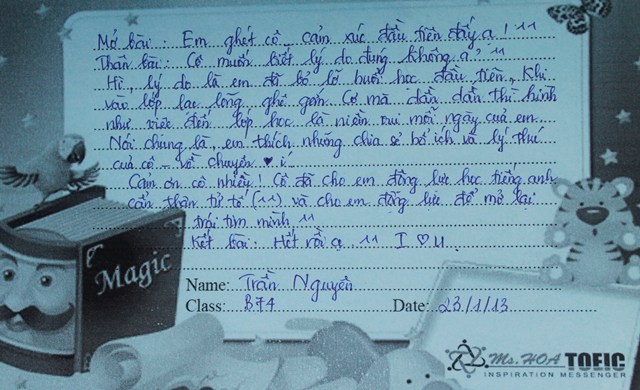 Mở bài: Em ghét cô - cảm xúc đầu tiên đấy ạ! ^^
Thân bài: Cô muốn biết lý do đúng không ạ? ^^
Hì, lý do là em đã bỏ lỡ buổi học đầu tiên, khi
vào lớp lạc lõng ghê gớm. Cơ mà dần dần thì hình
như việc đến lớp học là niềm vui mỗi ngày của em
Nói chung là, em thích những chia sẻ bổ ích và lý thú
của cô - về chuyện ♥ í
Cảm ơn cô nhiều! Cô đã cho em động lực học tiếng anh
cẩn thận tử tế (^^) và cho em động lực để mở lại
trái tim mình ^^
Kết bài: Hết rồi ạ ^^ I ♡ U.
Magic
Name: Trần Nguyên
Class: B74
Date: 23/1/13
Ms. HOA TOEIC
INSPIRATION MESSENGER